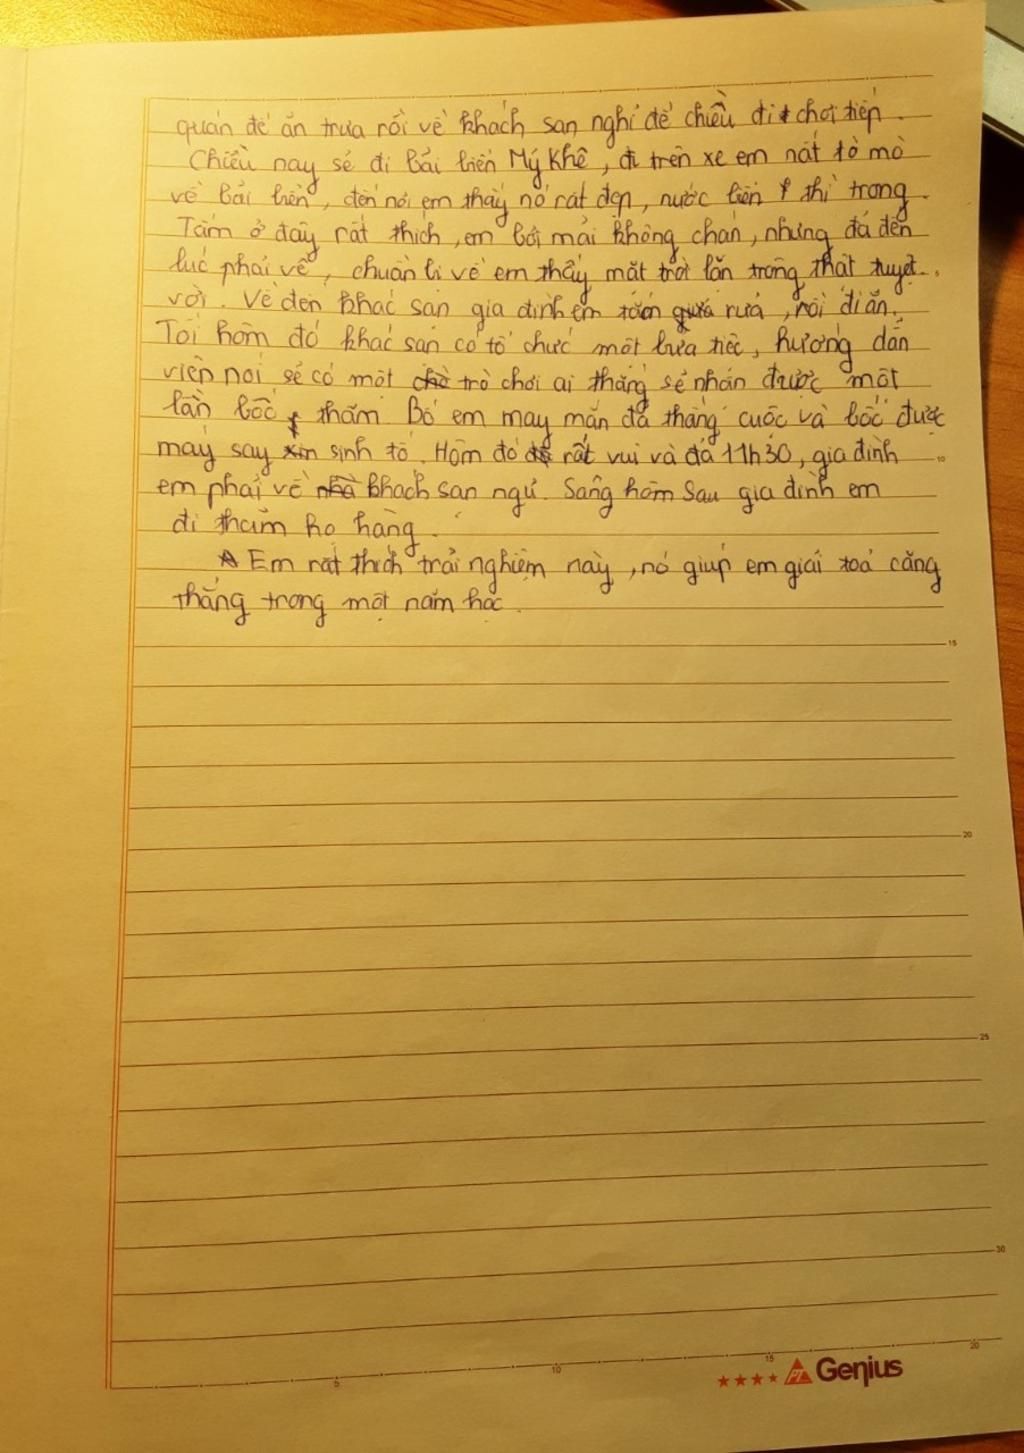 quán để ăn trưa rồi về khách sạn nghỉ để chiều đi chơi tiếp.
Chiều nay sẽ đi bải biển Mỹ Khê, đi trên xe em rất tò mò
về bải biển, đến nơi em thấy nó rất đẹp, nước biển thì trong.
Tắm ở đây rất thích, em bơi mải không chán, nhưng đã đến
lúc phải về, chuẩn bị về em thấy mặt trời lặn trông thật tuyệt
vời. Về đến khác sạn gia đình em tắm rửa, rồi đi ăn.
Tối hôm đó khác sạn có tổ chức một bữa tiệc, hướng dẫn
viên nói sẽ có một trò chơi ai thắng sẽ nhận được một
lần bốc thăm. Bố em may mắn đã thắng cuộc và bốc được
máy say sinh tố. Hôm đó rất vui và đã 11h30, gia đình
em phải về khách sạn ngủ. Sáng hôm sau gia đình em
đi thăm họ hàng.
Em rất thích trải nghiệm này, nó giúp em giải toả căng
thẳng trong một năm học.
10
15
20
25
30
5
10
15
20
PT Genius